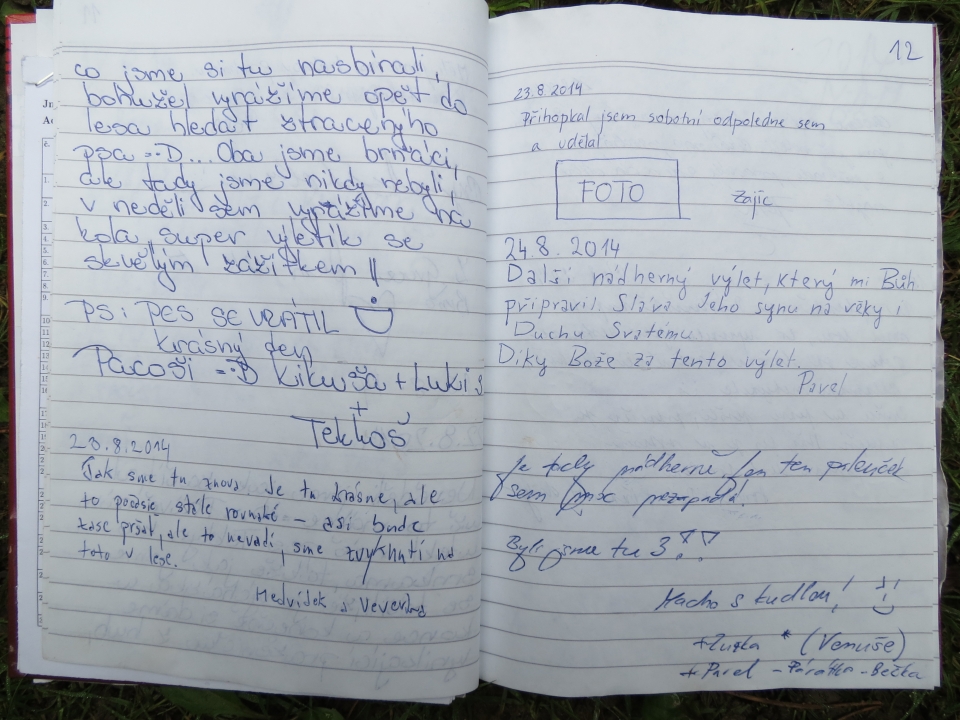 co jsme si tu nasbírali,
bohužel vyrážíme opět do
lesa hledat ztraceného
psa =:D... Oba jsme brňáci,
ale tady jsme nikdy nebyli,
v neděli sem vyrážíme na
kola, super výletík se
skvělým zážitkem !!
PS: PES SE VRÁTIL
krásný den
Pacoši =:D Kikuša + Lukis
+
Tekkoš
23.8.2014
Tak sme tu znova. Je tu krásne, ale
to počasie stále rovnaké – asi bude
zase pršať, ale to nevadí, sme zvyknutí na
toto v lese.
Medvídek s Veverkou
12
23.8.2014
Přihopkal jsem sobotní odpoledne sem
a udělal
FOTO
zajíc
24.8.2014
Další nádherný výlet, který mi Bůh
připravil. Sláva Jeho synu na věky i
Duchu Svatému.
Díky Bože za tento výlet.
Pavel
Je tady nádherně, jen ten
sem
Byli jsme tu 3!!
Macho s kudlou! :)
+ Zuzka * (Venuše)
+ Pavel - Párátko - Bečka